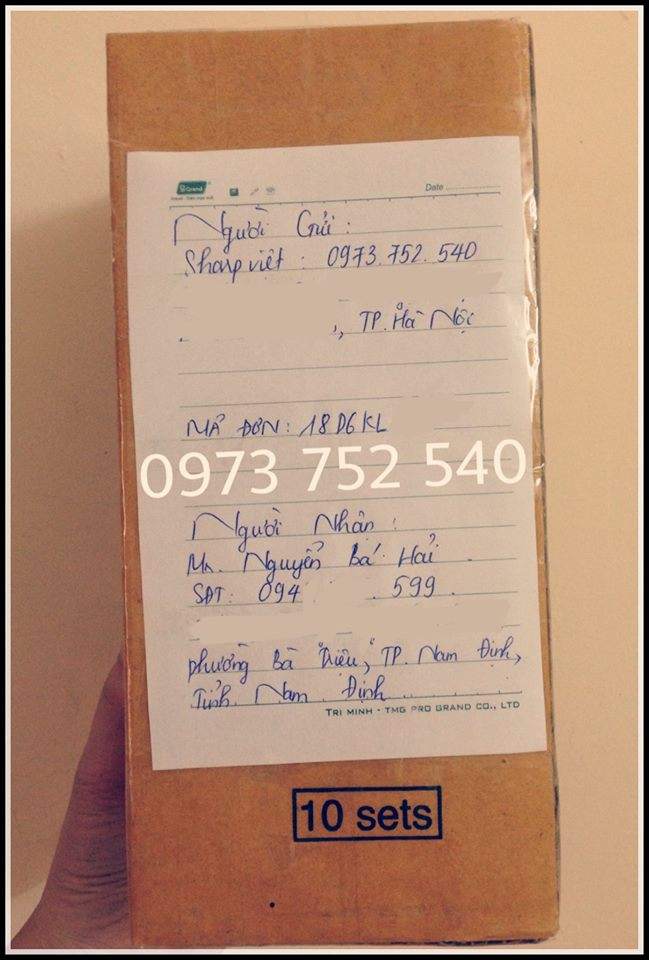 Grand
Date
Người Gửi:
Sharp việt: 0973.752.540
, TP. Hà Nội
MÃ ĐƠN: 18D6KL
0973 752 540
Người Nhận:
Mr. Nguyễn Bá Hải.
SĐT: 094 . 599.
phường Bà Triệu, TP. Nam Định,
Tỉnh Nam Định
TRI MINH - TMG PRO GRAND CO., LTD
10 sets